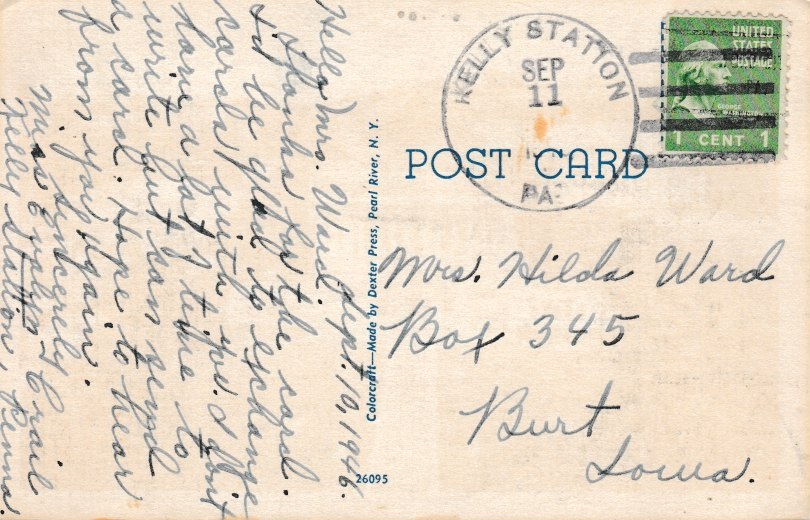 Sept. 10, 1946.
Hello Mrs. Ward,
Thanks for the card.
I'd be glad to exchange
cards with you. I don't
have a lot of time to
write but can send
a card. Hope to hear
from you again.
Sincerely
Miss Evalyn Crail
Kelly Station, Penna.
Colorcraft—Made by Dexter Press, Pearl River, N. Y.
26095
POST CARD
KELLY STATION
SEP
11
PA.
UNITED
STATES
POSTAGE
GEORGE
WASHINGTON
1 CENT 1
Mrs. Hilda Ward
Box 345
Burt
Iowa.